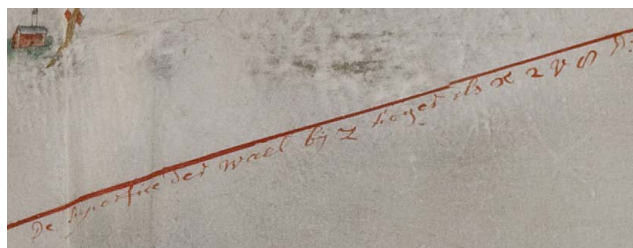 De superfice der wael bij Z hoger als x 2 v